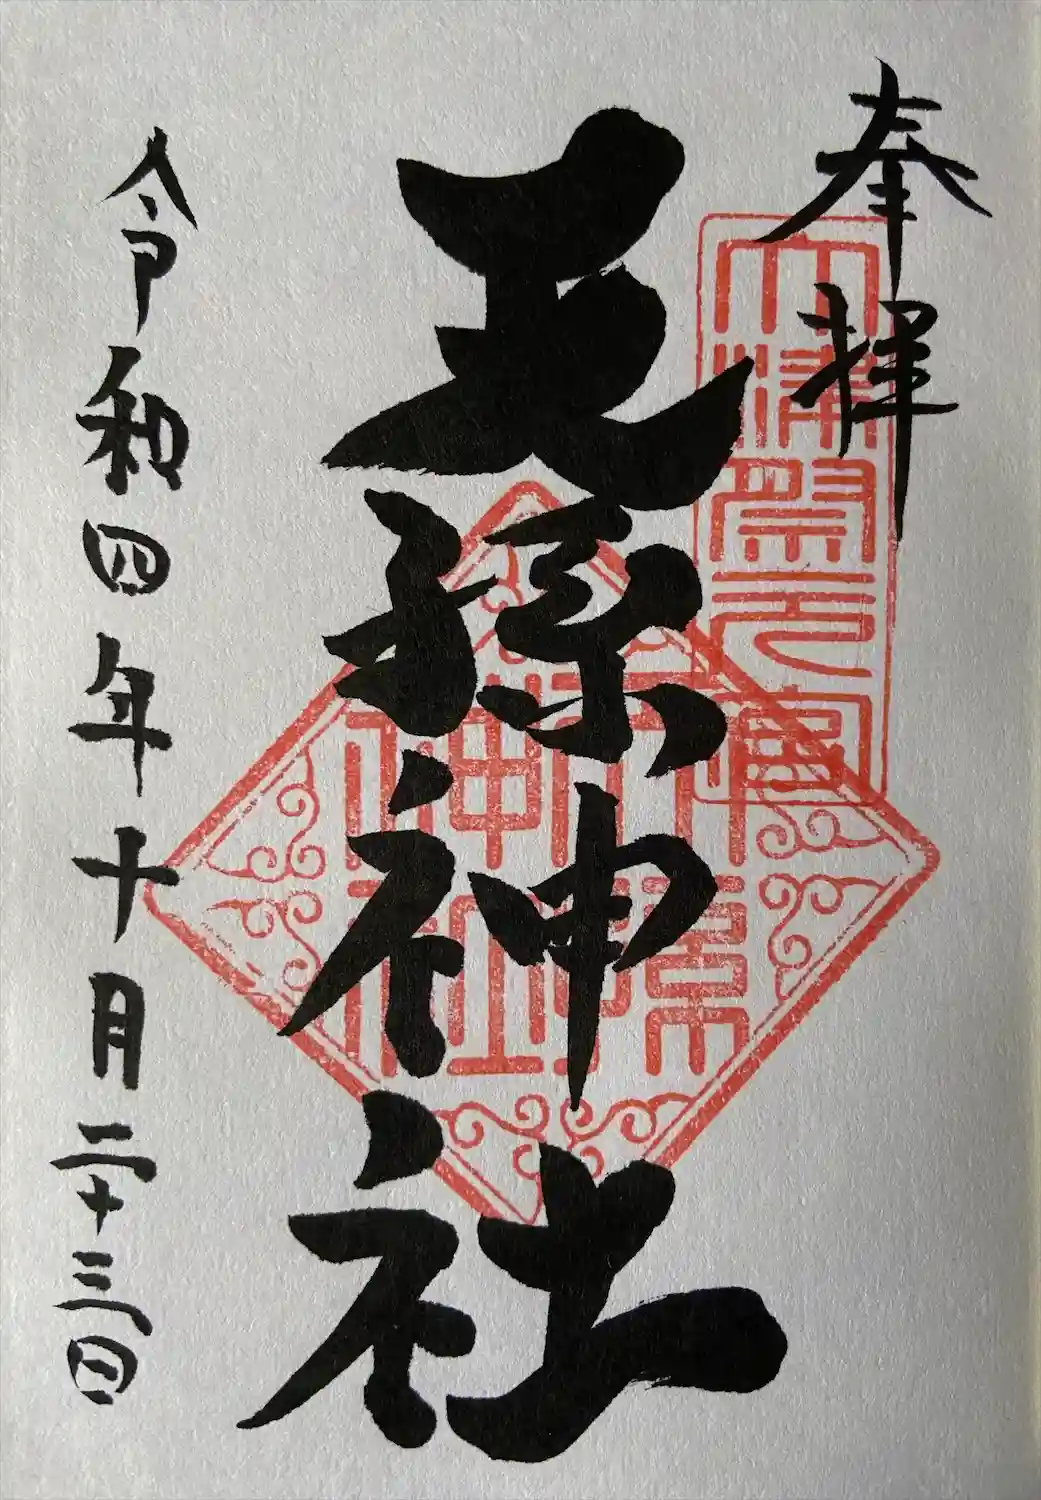 奉拝
大津祭之宮
天孫神社
天孫神社
令和四年十月二十三日